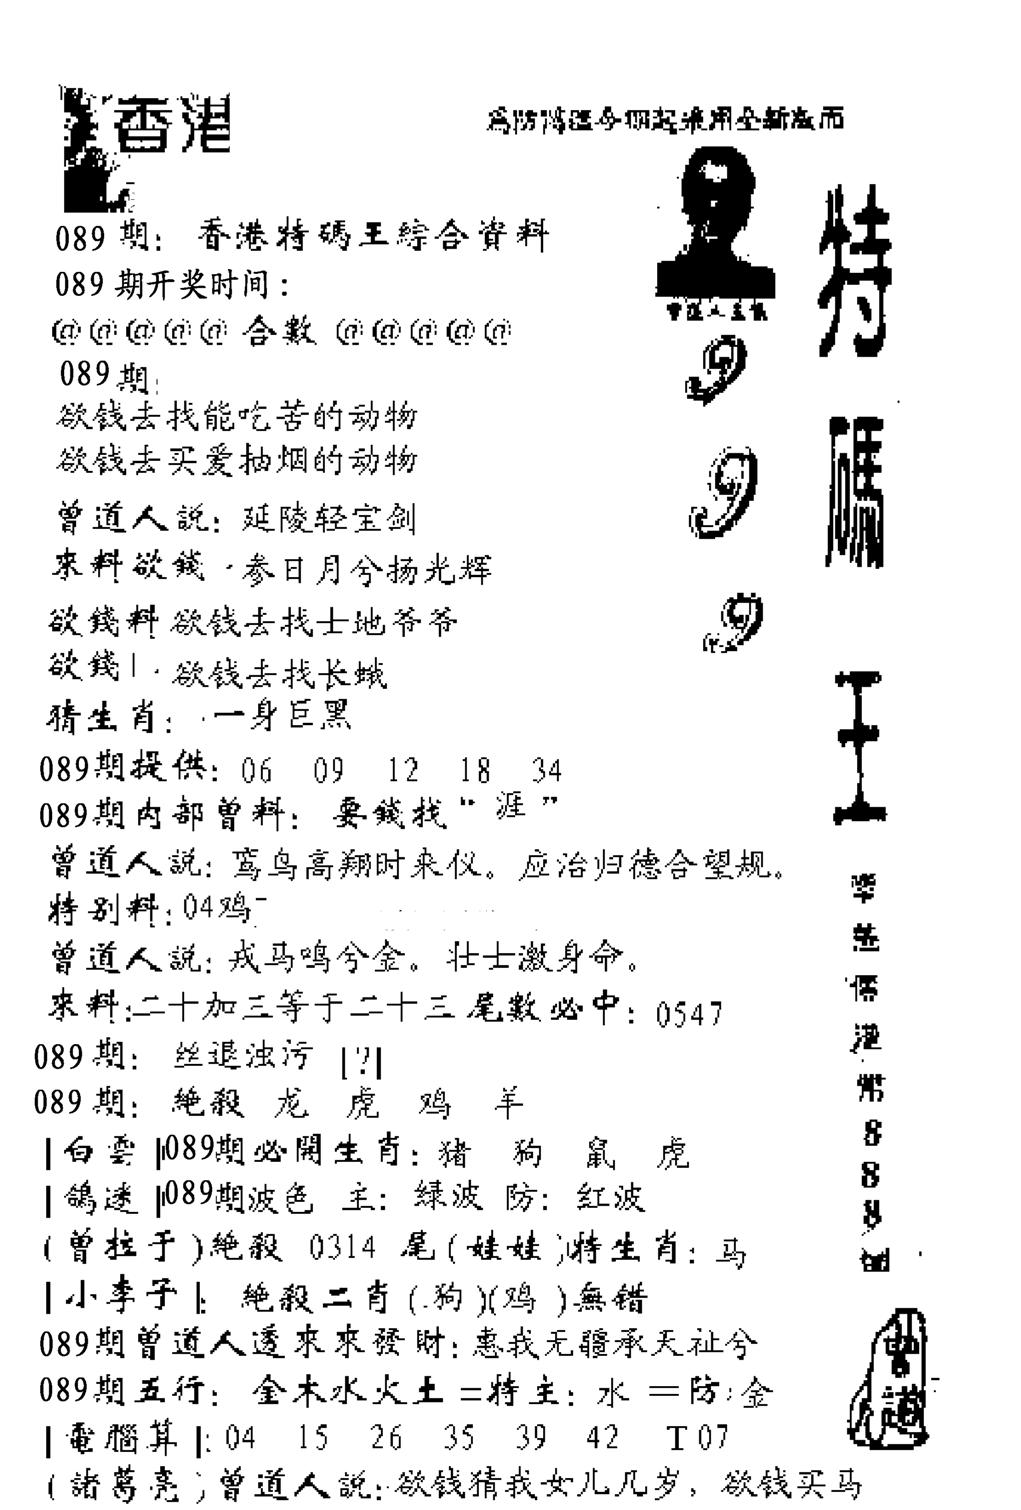 香港
089期：香港特碼王綜合資料
089期开奖时间：
@@@@@合數@@@@@
089期：
欲钱去找能吃苦的动物
欲钱去买爱抽烟的动物
曾道人説：延陵轻宝剑
來料欲錢·参日月兮扬光辉
欲錢料 欲钱去找士地爷爷
欲錢|·欲钱去找长蛾
猜生肖：·一身巨黑
089期提供：06 09 12 18 34
089期内部曾料：要錢找“涯”
曾道人説：鸾鸟高翔时来仪。应治归德合望规。
特别料：04鸡
曾道人説：戎马鸣兮金。壮士激身命。
來料：二十加三等于二十三 尾數必中：0547
089期：丝退浊污 |?|
089期：絶殺 龙 虎 鸡 羊
|白雲|089期必開生肖：猪 狗 鼠 虎
|鴿迷|089期波色 主：绿波 防：红波
(曾拉于)絶殺 0314 尾(娃娃)特生肖：马
|小李子|：絶殺二肖(.狗)(鸡)無错
089期曾道人透來來發財：惠我无疆承天祉兮
089期五行：金木水火土=特主：水=防：金
|電腦算|：04 15 26 35 39 42 T07
(諸葛亮)曾道人説：欲钱猜我女儿几岁，欲钱买马
特碼王
999
888
曾道